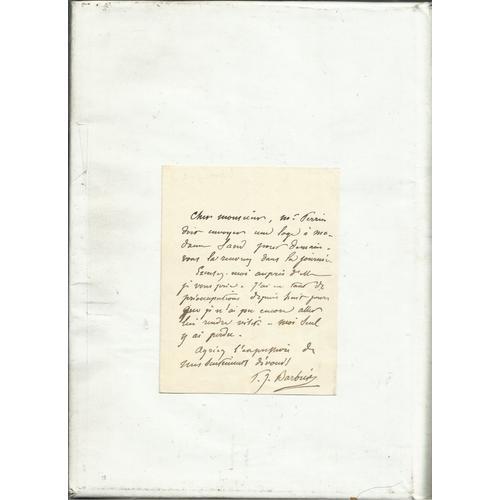 Cher monsieur, mr Perrin
doit envoyer une loge à ma-
dame Sand pour demain.
vous la recevrez dans la journée.
Excusez-moi auprès d'elle
je vous prie. J'ai eu tant de
préoccupations depuis huit jours
que je n'ai pu encore aller
lui rendre visite. moi seul
y ai perdu.
Agréez l'expression de
mes sentiments dévoués